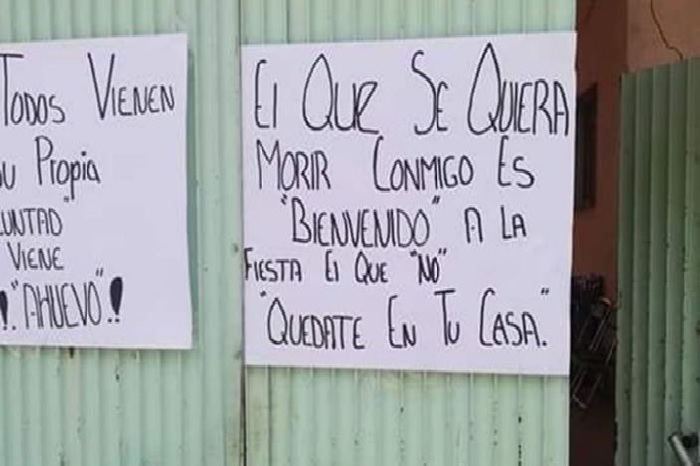 TODOS VIENEN
Propia
VIENE
!"AHUEVO"!
El QUE SE QUIERA
MORIR CONMIGO ES
"BIENVENIDO" A LA
FIESTA El QUE "NO"
"QUEDATE EN TU CASA."